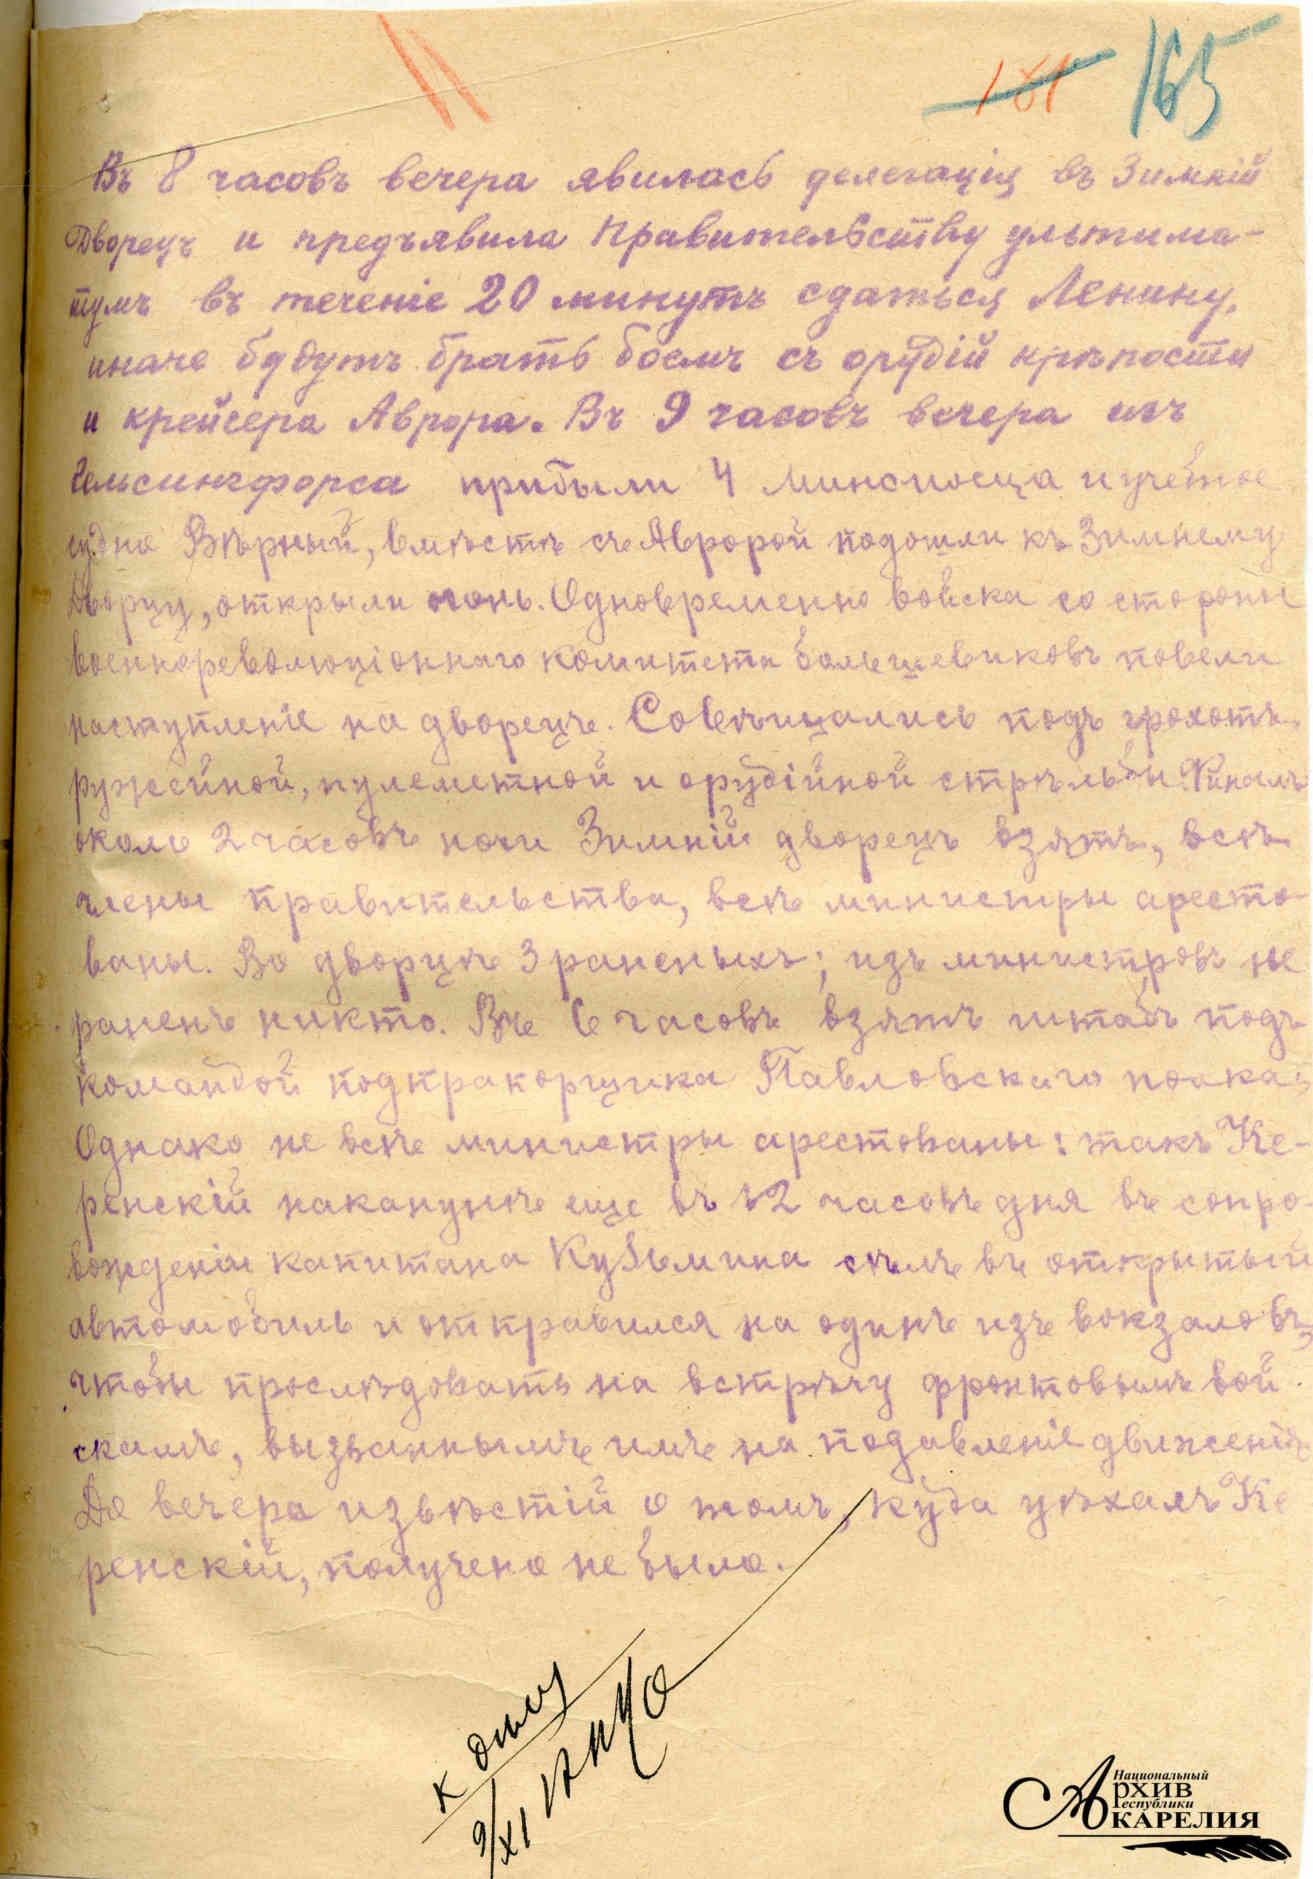 181 165
Въ 8 часовъ вечера явилась делегація въ Зимній
Дворецъ и предъявила Правительству ультима-
тумъ въ теченіе 20 минутъ сдаться Ленину,
иначе будутъ брать боемъ съ орудій крѣпости
и крейсера Аврора. Въ 9 часовъ вечера изъ
Гельсингфорса прибыли 4 миноносца и учебное
судно Вѣрный, вмѣстѣ съ Авророй подошли къ Зимнему
Дворцу, открыли огонь. Одновременно войска со стороны
военнореволюціоннаго комитета большевиковъ повели
наступленіе на дворецъ. Совѣщались подъ грохотъ
ружейной, пулеметной и орудійной стрѣльбы. Финалъ:
около 2 часовъ ночи Зимній дворецъ взятъ, всѣ
члены правительства, всѣ министры аресто-
ваны. Во дворцѣ 3 раненыхъ; изъ министровъ не
раненъ никто. Въ 6 часовъ взятъ штабъ подъ
командой подпрапорщика Павловскаго полка.
Однако не всѣ министры арестованы: такъ Ке-
ренскій наканунѣ еще въ 12 часовъ дня въ сопро-
вожденіи капитана Кузьмина сѣлъ въ открытый
автомобиль и отправился на одинъ изъ вокзаловъ,
чтобы прослѣдовать на встрѣчу фронтовымъ вой-
скамъ, вызваннымъ имъ на подавленіе движенія.
До вечера извѣстій о томъ, куда уѣхалъ Ке
ренскій, получено не было.
К делу
9/XI
Национальный
Архив
Республики
Карелия